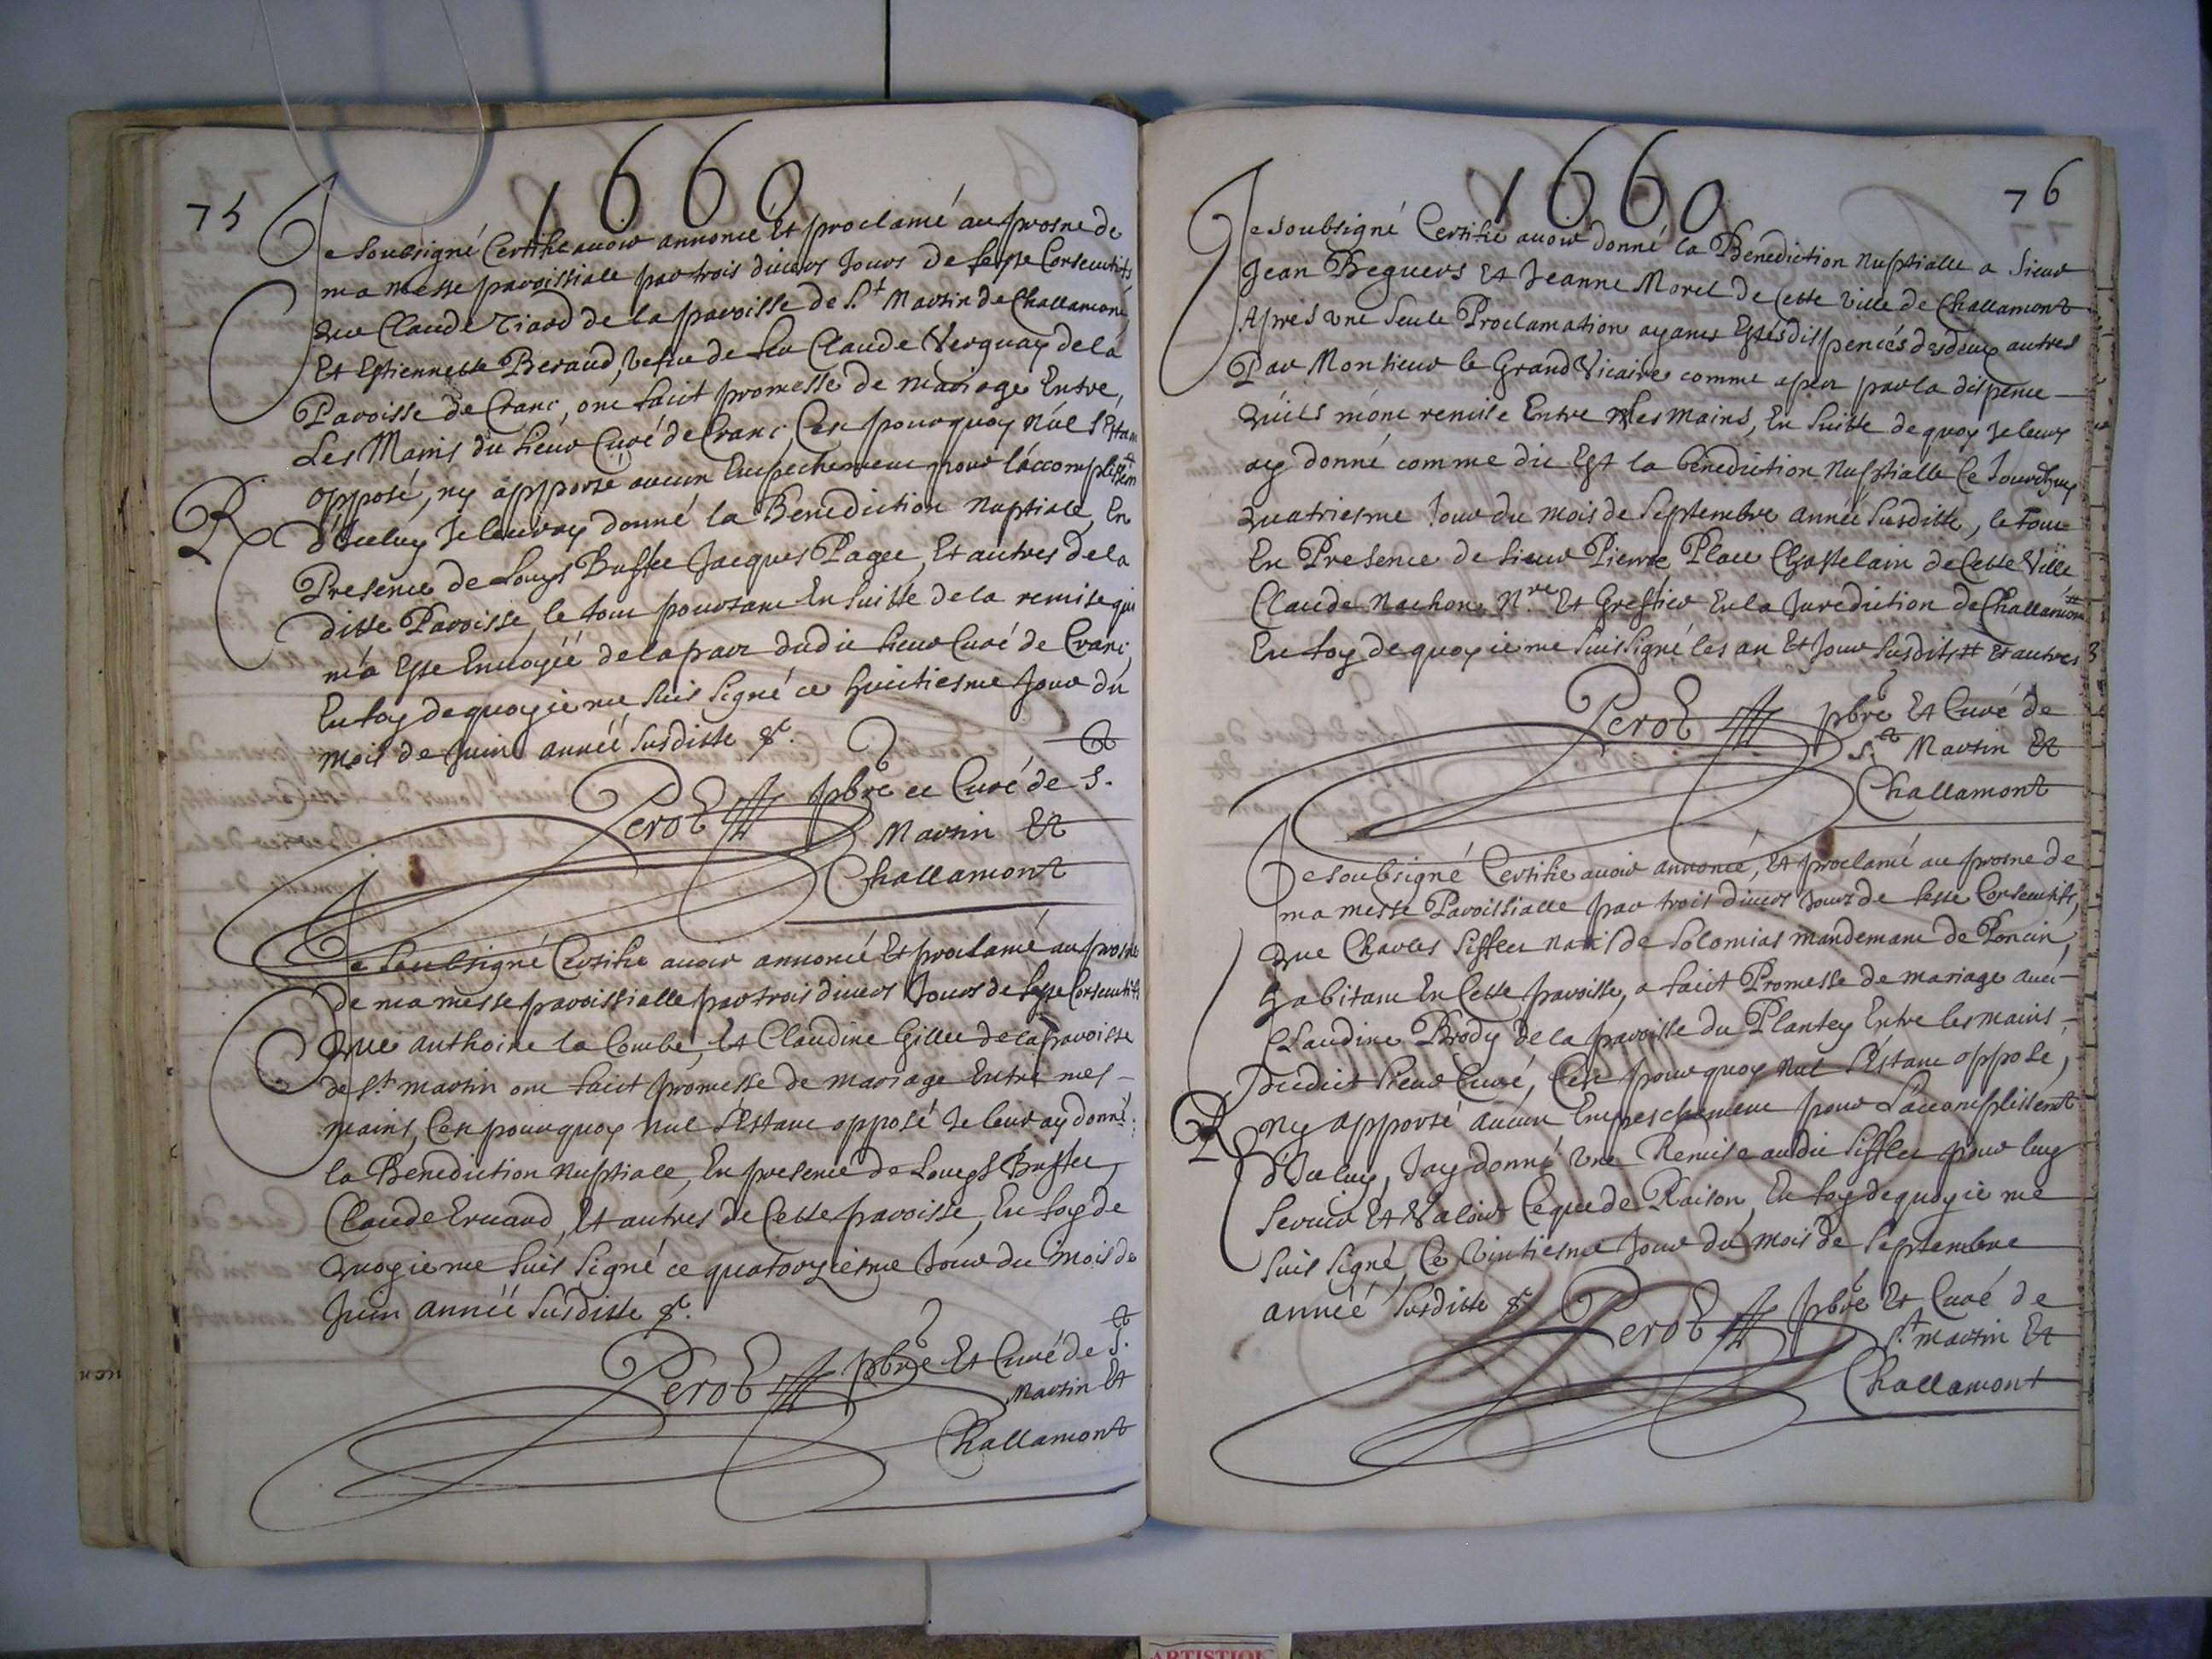 75
1660
Je soubsigné Certifie avoir annoncé Et proclamé au prosne de
ma Messe paroissiale par trois divers Jours de feste Consecutifs,
Que Claude Tiard de la paroisse de S.t Martin de Challamont
Et Estiennette Beraud, vefve de feu Claude Verguay de la
Paroisse de Crans, ont fait promesse de mariage Entre
Les Mains du sieur Curé de Crans, C'est pourquoy Nul s'estant
opposé, ny apporté aucun Empechement pour l'accomplissem.t
R
d'Iceluy Je leur ay donné la Benediction Nuptiale, En
Presence de Louys Buffet Jacques Paget, Et autres de la
ditte Paroisse, le tout pourtant En suitte de la remise qui
m'a Esté Envoyée de la part dudit sieur Curé de Crans,
En foy de quoy ie me suis signé ce huictiesme Jour du
Mois de Juin année susditte &c.
Perot pbre et Curé de S.t
Martin Et
Challamont
Je Soubsigné Certifie avoir annoncé Et proclamé au prosne
de ma messe paroissialle par trois divers Jours de feste Consecutifs
Que Anthoine la Combe, Et Claudine Gillet de la paroisse
de S.t Martin ont faict promesse de mariage Entre mes
mains, C'est pourquoy Nul s'estant opposé Je leur ay donné
la Benediction Nuptiale, En presence de Louys Buffet,
Claude Eruard, Et autres de Cette paroisse, En foy de
Quoy ie me suis signé ce quatorziesme Jour du mois de
Juin année susditte &c.
Perot pbre Et Curé de S.t
Martin Et
Challamont
1660
76
Je soubsigné Certifie avoir donné la Benediction Nuptialle a Sieur
Jean Beguers Et Jeanne Morel de Cette ville de Challamont
Après une seule Proclamation ayants Estés dispencés des deux autres
Par Monsieur le Grand Vicaire comme apert par la dispence
Qu'ils m'ont remise Entre Mes Mains, En suitte de quoy Je leurs
ay donné comme dit Est la benediction Nuptialle Ce Jourdhuy
Quatriesme Jour du mois de Septembre année susditte, le tout
En Presence de sieur Pierre Place Chastelain de Cette Ville
Claude Nachon N.re Et Greffier En la Juredection de Challamont #
En foy de quoy ie me suis signé les an Et Jour susdits # Et autres
Perot pbre Et Curé de
S.t Martin Et
Challamont
Je soubsigné Certifie avoir annoncé, Et proclamé au prosne de
ma messe Paroissialle par trois divers Jours de feste Consecutifs,
Que Charles Sifflet natif de Solomias mandement de Poncin,
habitant En Cette paroisse, a faict Promesse de mariage avec
Claudine Brody de la paroisse du Plantey Entre les mains
dudict sieur Curé, C'est pourquoy Nul s'estant opposé,
R
ny apporté aucun Empeschement pour L'accomplissem.t
d'Iceluy, J'ay donné une Remise audit Sifflet pour luy
servir Et Valoir Ce que de Raison, En foy de quoy ie me
suis signé, Ce vintiesme Jour du mois de Septembre
année susditte &c
Perot pbre Et Curé de
S.t Martin Et
Challamont